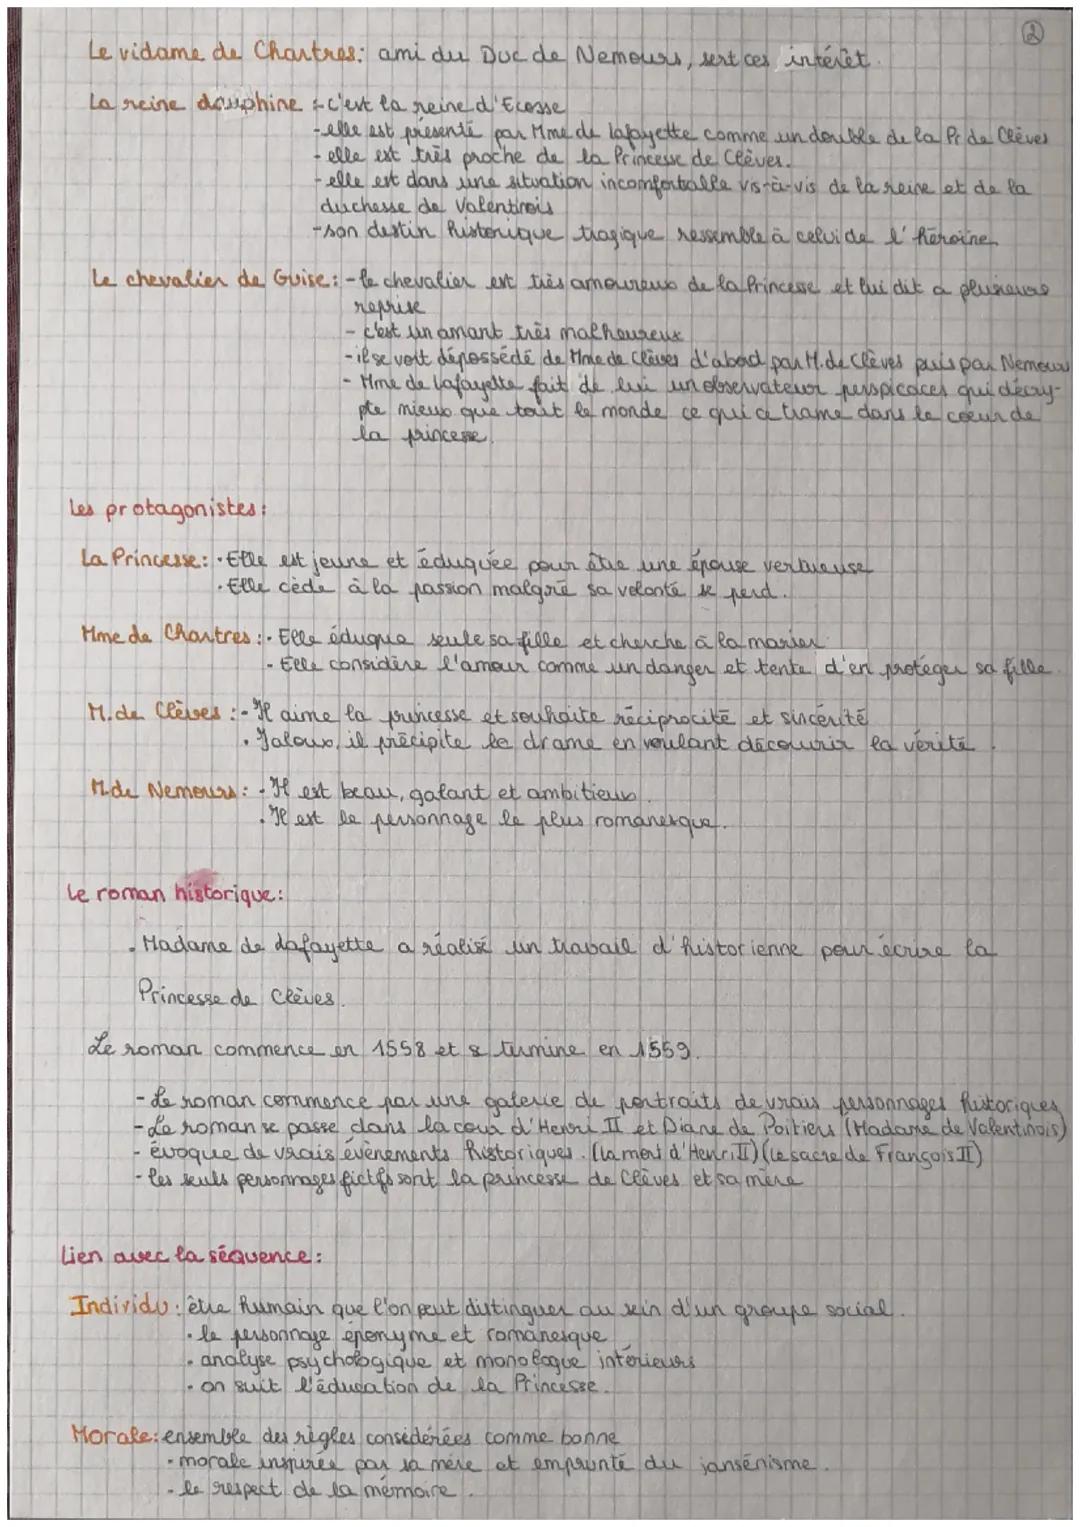 ②
Le vidame de Chartres: ami du Duc de Nemours, sert ces intérêt.
La reine dauphine :-c'est la reine d'Ecosse
-elle est présenté par Mme de lafayette comme un double de la Pr de Clèves
- elle est très proche de la Princesse de Clèves.
- elle est dans une situation incomfortable vis-à-vis de la reine et de la
duchesse de Valentinois
-son destin historique tragique ressemble à celui de l'héroïne
Le chevalier de Guise: -le chevalier est très amoureux de la Princesse et lui dit a plusieurs
reprise
- c'est un amant très malheureux
-il se voit dépossédé de Mme de Clèves d'abord par M. de Clèves puis par Nemours
- Mme de Lafayette fait de lui un observateur perspicaces qui décry-
pte mieux que tout le monde ce qui ce trame dans le cœur de
la princesse.
Les protagonistes:
La Princesse: · Elle est jeune et éduquée pour être une épouse vertueuse
· Elle cède à la passion malgré sa volonté se perd.
Mme de Chartres :· Elle éduque seule sa fille et cherche à la marier.
- Elle considère l'amour comme un danger et tente d'en protéger sa fille.
M. de Clèves :- Il aime la princesse et souhaite réciprocité et sincérité
· Jaloux, il précipite le drame en voulant découvrir la vérité.
M. de Nemours: - Il est beau, galant et ambitieux.
· Il est le personnage le plus romanesque.
Le roman historique:
· Madame de Lafayette a réalisé un travail d'historienne pour écrire la
Princesse de Clèves.
Le roman commence en 1558 et se termine en 1559.
- Le roman commence par une galerie de portraits de vrais personnages historiques
- Le roman se passe dans la cour d'Henri II et Diane de Poitiers (Madame de Valentinois)
- évoque de vrais évènements historiques. (la mort d'Henri II) (le sacre de François II)
- les seuls personnages fictifs sont la princesse de Clèves et sa mère
Lien avec la séquence:
Individu: être humain que l'on peut distinguer au sein d'un groupe social.
· le personnage éponyme et romanesque
· analyse psychologique et monologue intérieurs
· on suit l'éducation de la Princesse.
Morale: ensemble des règles considérées comme bonne
· morale inspirée par sa mère et emprunté du jansénisme.
· le respect de la mémoire.